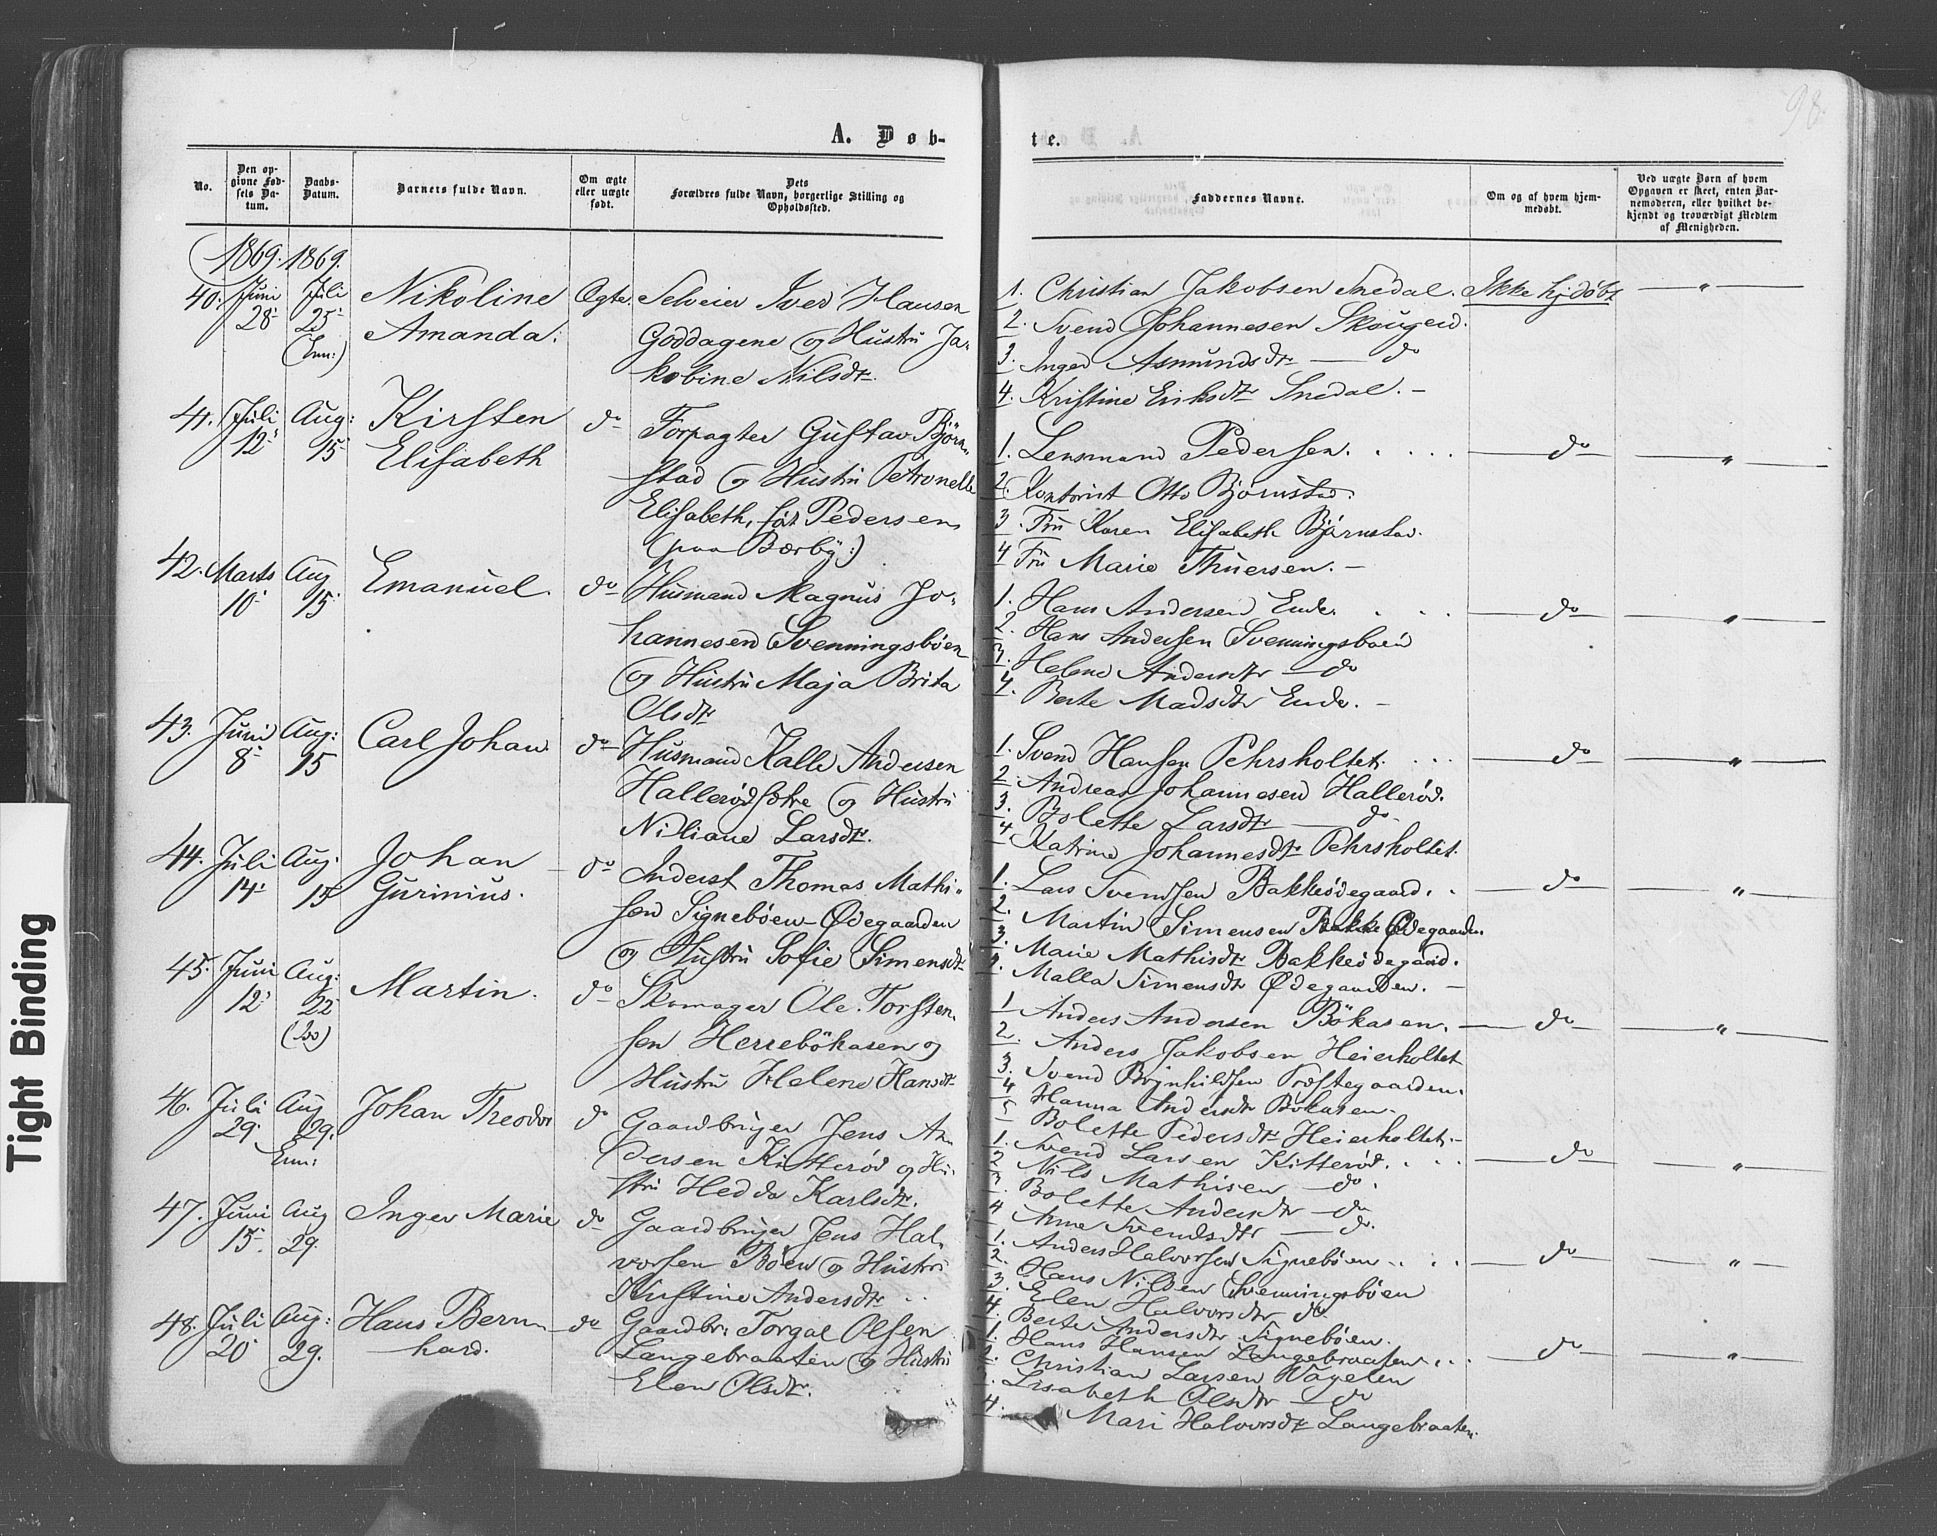 98.
A. Døb-
te.
No.
Den op-
givne Fød-
sels Da-
tum.
Daabs-
Datum.
Barnets fulde Navn.
Om ægte
eller uægte
født.
Dets
Forældres fulde Navn, borgerlige Stilling og
Opholdssted.
Faddernes Navne.
Om og af hvem hjem-
medøbt.
Ved uægte Børn af hvem
Opgaven er skeet, enten Bar-
nemoderen, eller hvilket be-
kjendt og troværdigt Medlem
af Menigheden.
1869. 1869.
40. Juni 28 Juli 25
Nikoline
Amanda.
Ægte
Selveier Iver Hansen
Goddagene og Hustru Ja-
kobine Nilsdtr.
1. Christian Jakobsen Snedal.
2. Svend Johannesen
3. Inger Asmundsdtr — do
4. Kristine Eriksdtr Snedal. —
Ikke hjdøbt
— " —
41. Juli 12 Aug: 15
Kirsten
Elisabeth
do
Forpagter Gustav Bjørn-
stad og Hustru Petronelle
Elisabeth, før Pedersen,
(paa Bærby:)
1. Lensmand Pedersen.
2. Kontorist Otto Bjørnstad.
3. Fru Karen Elisabeth Bjørnstad.
4 Fru Marie Thuersen. —
do
"
42. Marts 10 Aug 15
Emanuel.
do
Husmand Magnus Jo-
hannesen Svenningsbøen
og Hustru Maja Brita
Olsdtr
1. Hans Andersen Ende.
2. Hans Andersen Svenningsboen
3. Helene Andersdtr — do
4. Berte Madsdtr Ende. —
do
"
43. Juni 8 Aug: 15
Carl Johan.
do
Husmand Kalle Andersen
Hallerød og Hustru
Larsdtr.
1. Svend Hansen Pehrsholtet.
2. Andreas Johannesen Hallerød.
3. Bolette Larsdtr — do
4 Katrine Johannesdtr Pehrsholtet.
do
"
44. Juli 14 Aug. 15
Johan
Gurinius.
do
Inderst Thomas Mathi-
sen Signebøen-Ødegaarden
og Hustru Sofie Simensdtr
1. Lars Svendsen Bakkeødegaard.
2. Martin Simensen Bakke Ødegaarden.
3. Marie Mathisdtr Bakkeødegaard.
4. Malla Simensdtr Ødegaarden. —
do
"
45. Juni 12 Aug: 22
Martin.
do
Skomager Ole Torsten-
sen Herrebökasen og
Hustru Helene Hansdtr
1 Anders Andersen Bökasen.
2. Anders Jakobsen Heierholtet
3. Svend Brynhildsen Præstegaarden.
4 Hanna Andersdtr Bökasen.
5 Bolette Pedersdtr Heierholtet. —
do
"
46. Juli 29. Aug 29.
Johan Theodor
do
Gaardbruger Jens An-
dersen Kitterød og Hu-
stru Hedda Karlsdtr.
1. Svend Larsen Kitterød.
2 Nils Mathisen — do.
3. Bolette Andersdtr — do
4 Anne Svendsdtr — do.
do
"
47. Juni 15. Aug 29.
Inger Marie
do
Gaardbruger Jens Hal-
vorsen Böen og Hustru
Kristine Andersdtr
1. Anders Halvorsen Signebøen.
2. Hans Nilsen Svenningsbøen
3. Elen Halvorsdtr do
4. Berte Andersdtr Signebøen.
do
"
48. Juli 20 Aug: 29.
Hans Bern-
hard.
do
Gaardbr: Torgal Olsen
Langebraaten og Hustru
Elen Olsdtr.
1. Hans Hansen Langebraaten.
Christian Larsen Vögelen
Lisabeth Olsdtr — do
4. Mari Halvorsdtr Langebraaten.
do
"
Tight Binding